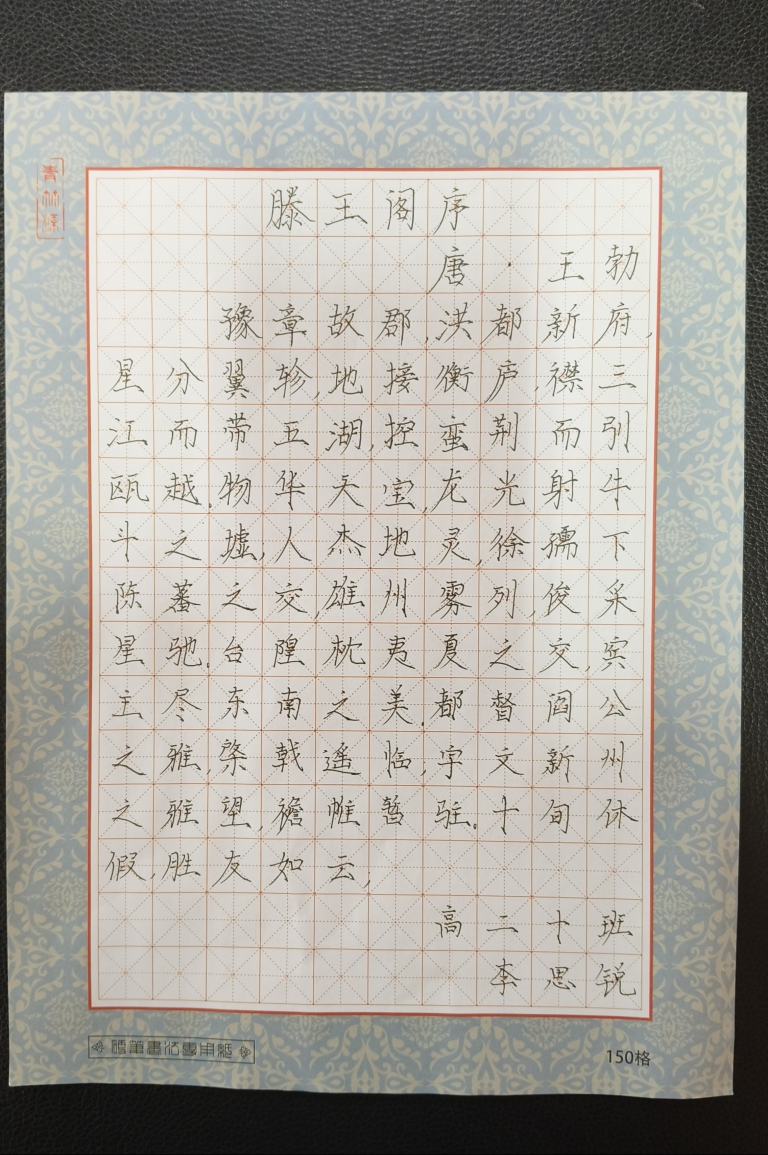 滕王阁序
唐·王勃
豫章故郡,洪都新府,
星分翼轸,地接衡庐,襟三
江而带五湖,控蛮荆而引
瓯越.物华天宝,龙光射牛
斗之墟,人杰地灵,徐孺下
陈蕃之交,雄州雾列,俊采
星驰.台隍枕夷夏之交,宾
主尽东南之美.都督阎公
之雅,棨戟遥临,宇文新州
之雅望,襜帷暂驻.十旬休
假,胜友如云,
高二十班
李思锐
硬筆書法專用紙
150格